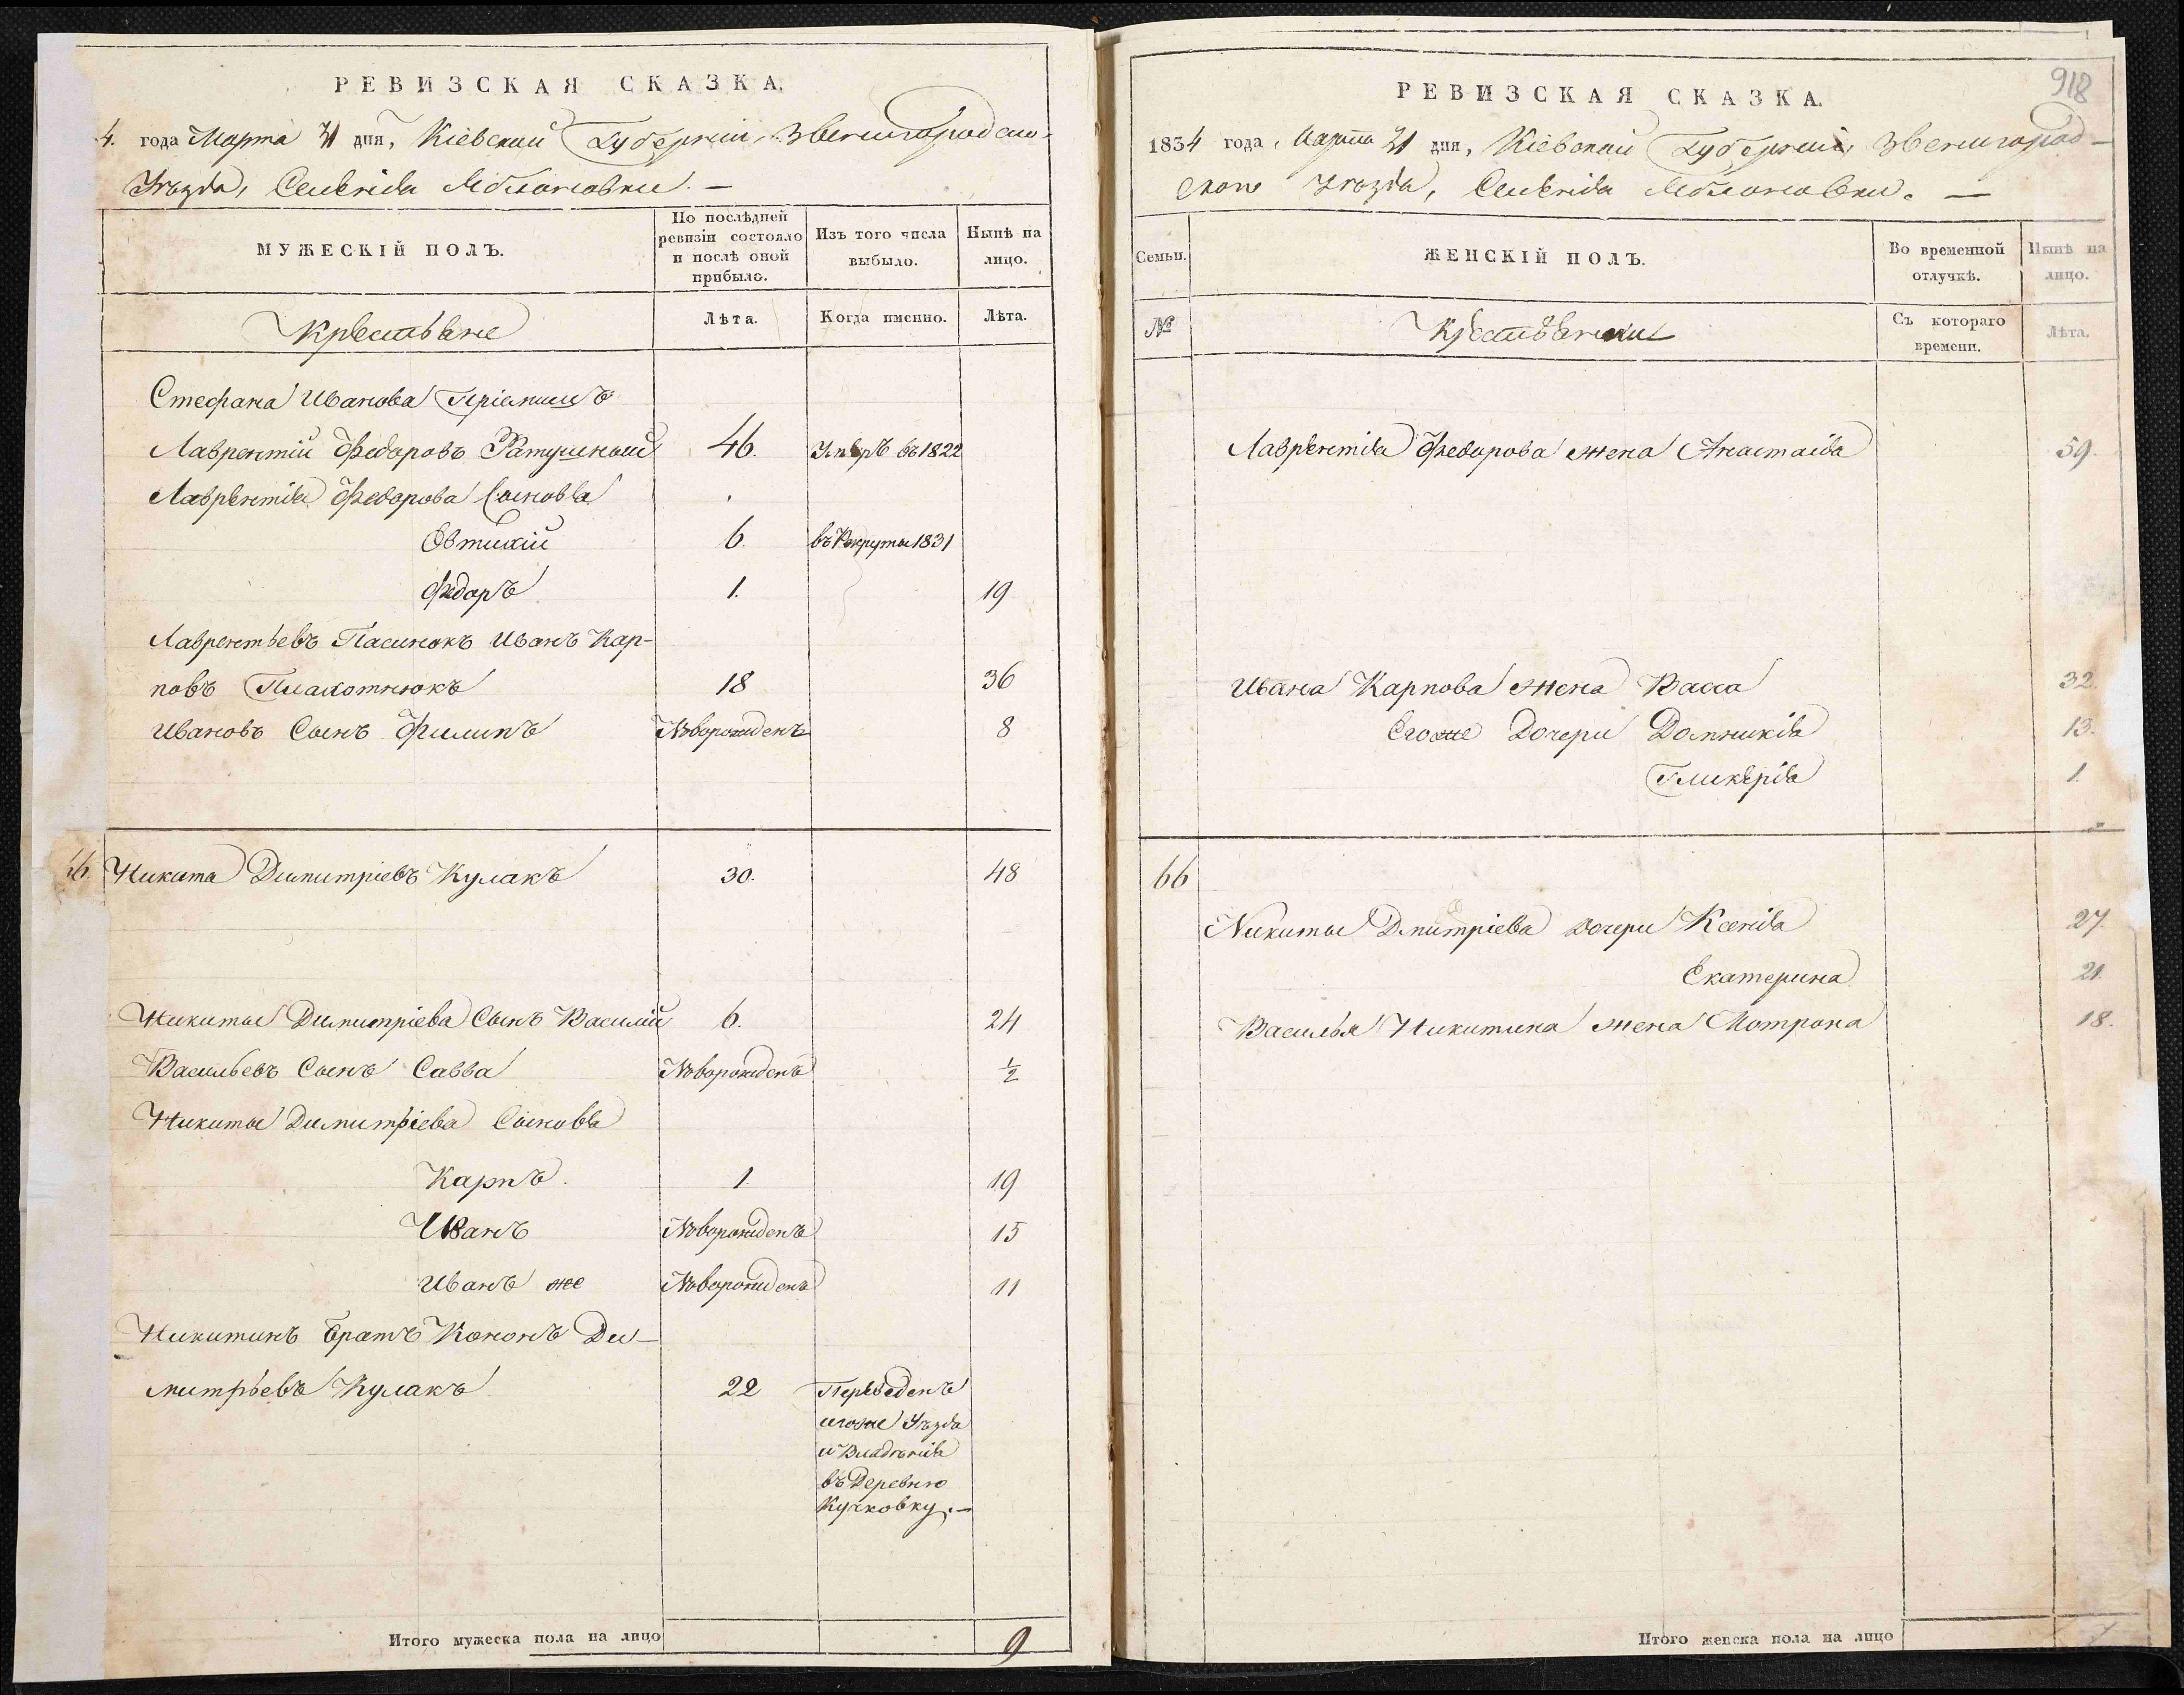 РЕВИЗСКАЯ СКАЗКА.
4. года Марта 31 дня, Кіевской Губерніи, Звенигородско-
Уѣзда, Селенія Яблоновки. —
МУЖЕСКІЙ ПОЛЪ.
По послѣдней ревизіи состояло и послѣ оной прибыло.
Изъ того числа выбыло.
Нынѣ на лицо.
Крестьяне
Лѣта.
Когда именно.
Лѣта.
Стефана Иванова Пріемышъ
Лаврентій Федоровъ Ратушный 46. Умеръ въ 1822
Лаврентія Федорова Сыновья
Евтихій 6. въ Рекруты 1831
Федоръ 1. 19
Лаврентьевъ Пасинокъ Иванъ Кар-
повъ Плахотнюкъ 18 36
Ивановъ Сынъ Филипъ Новорожденъ 8
66. Никита Димитріевъ Кулакъ 30. 48
Никиты Димитріева Сынъ Василій 6. 24
Васильевъ Сынъ Савва Новорожденъ ½
Никиты Димитріева Сыновья
Карпъ. 1 19
Иванъ Новорожденъ 15
Иванъ же Новорожденъ 11
Никитинъ братъ Кононъ Ди-
митрьевъ Кулакъ 22 Переведенъ
тогоже Уѣзда
и Владѣнія
въ Деревню
Кучковку. —
Итого мужеска пола на лицо 9
918
РЕВИЗСКАЯ СКАЗКА.
1834 года, Марта 31 дня, Кіевской Губерніи, Звенигород-
скаго Уѣзда, Селенія Яблоновки. —
Семьи.
ЖЕНСКІЙ ПОЛЪ.
Во временной отлучкѣ.
Нынѣ на лицо.
№
Крестьянки
Съ котораго времени.
Лѣта.
Лаврентія Федорова жена Анастасія 59.
Ивана Карпова жена Васса 32.
Егоже Дочери Домникія 13.
Гликерія 1.
66
Никиты Дмитріева дочери Ксенія 27.
Екатерина 21.
Василья Никитина жена Мотрона 18.
Итого женска пола на лицо 7